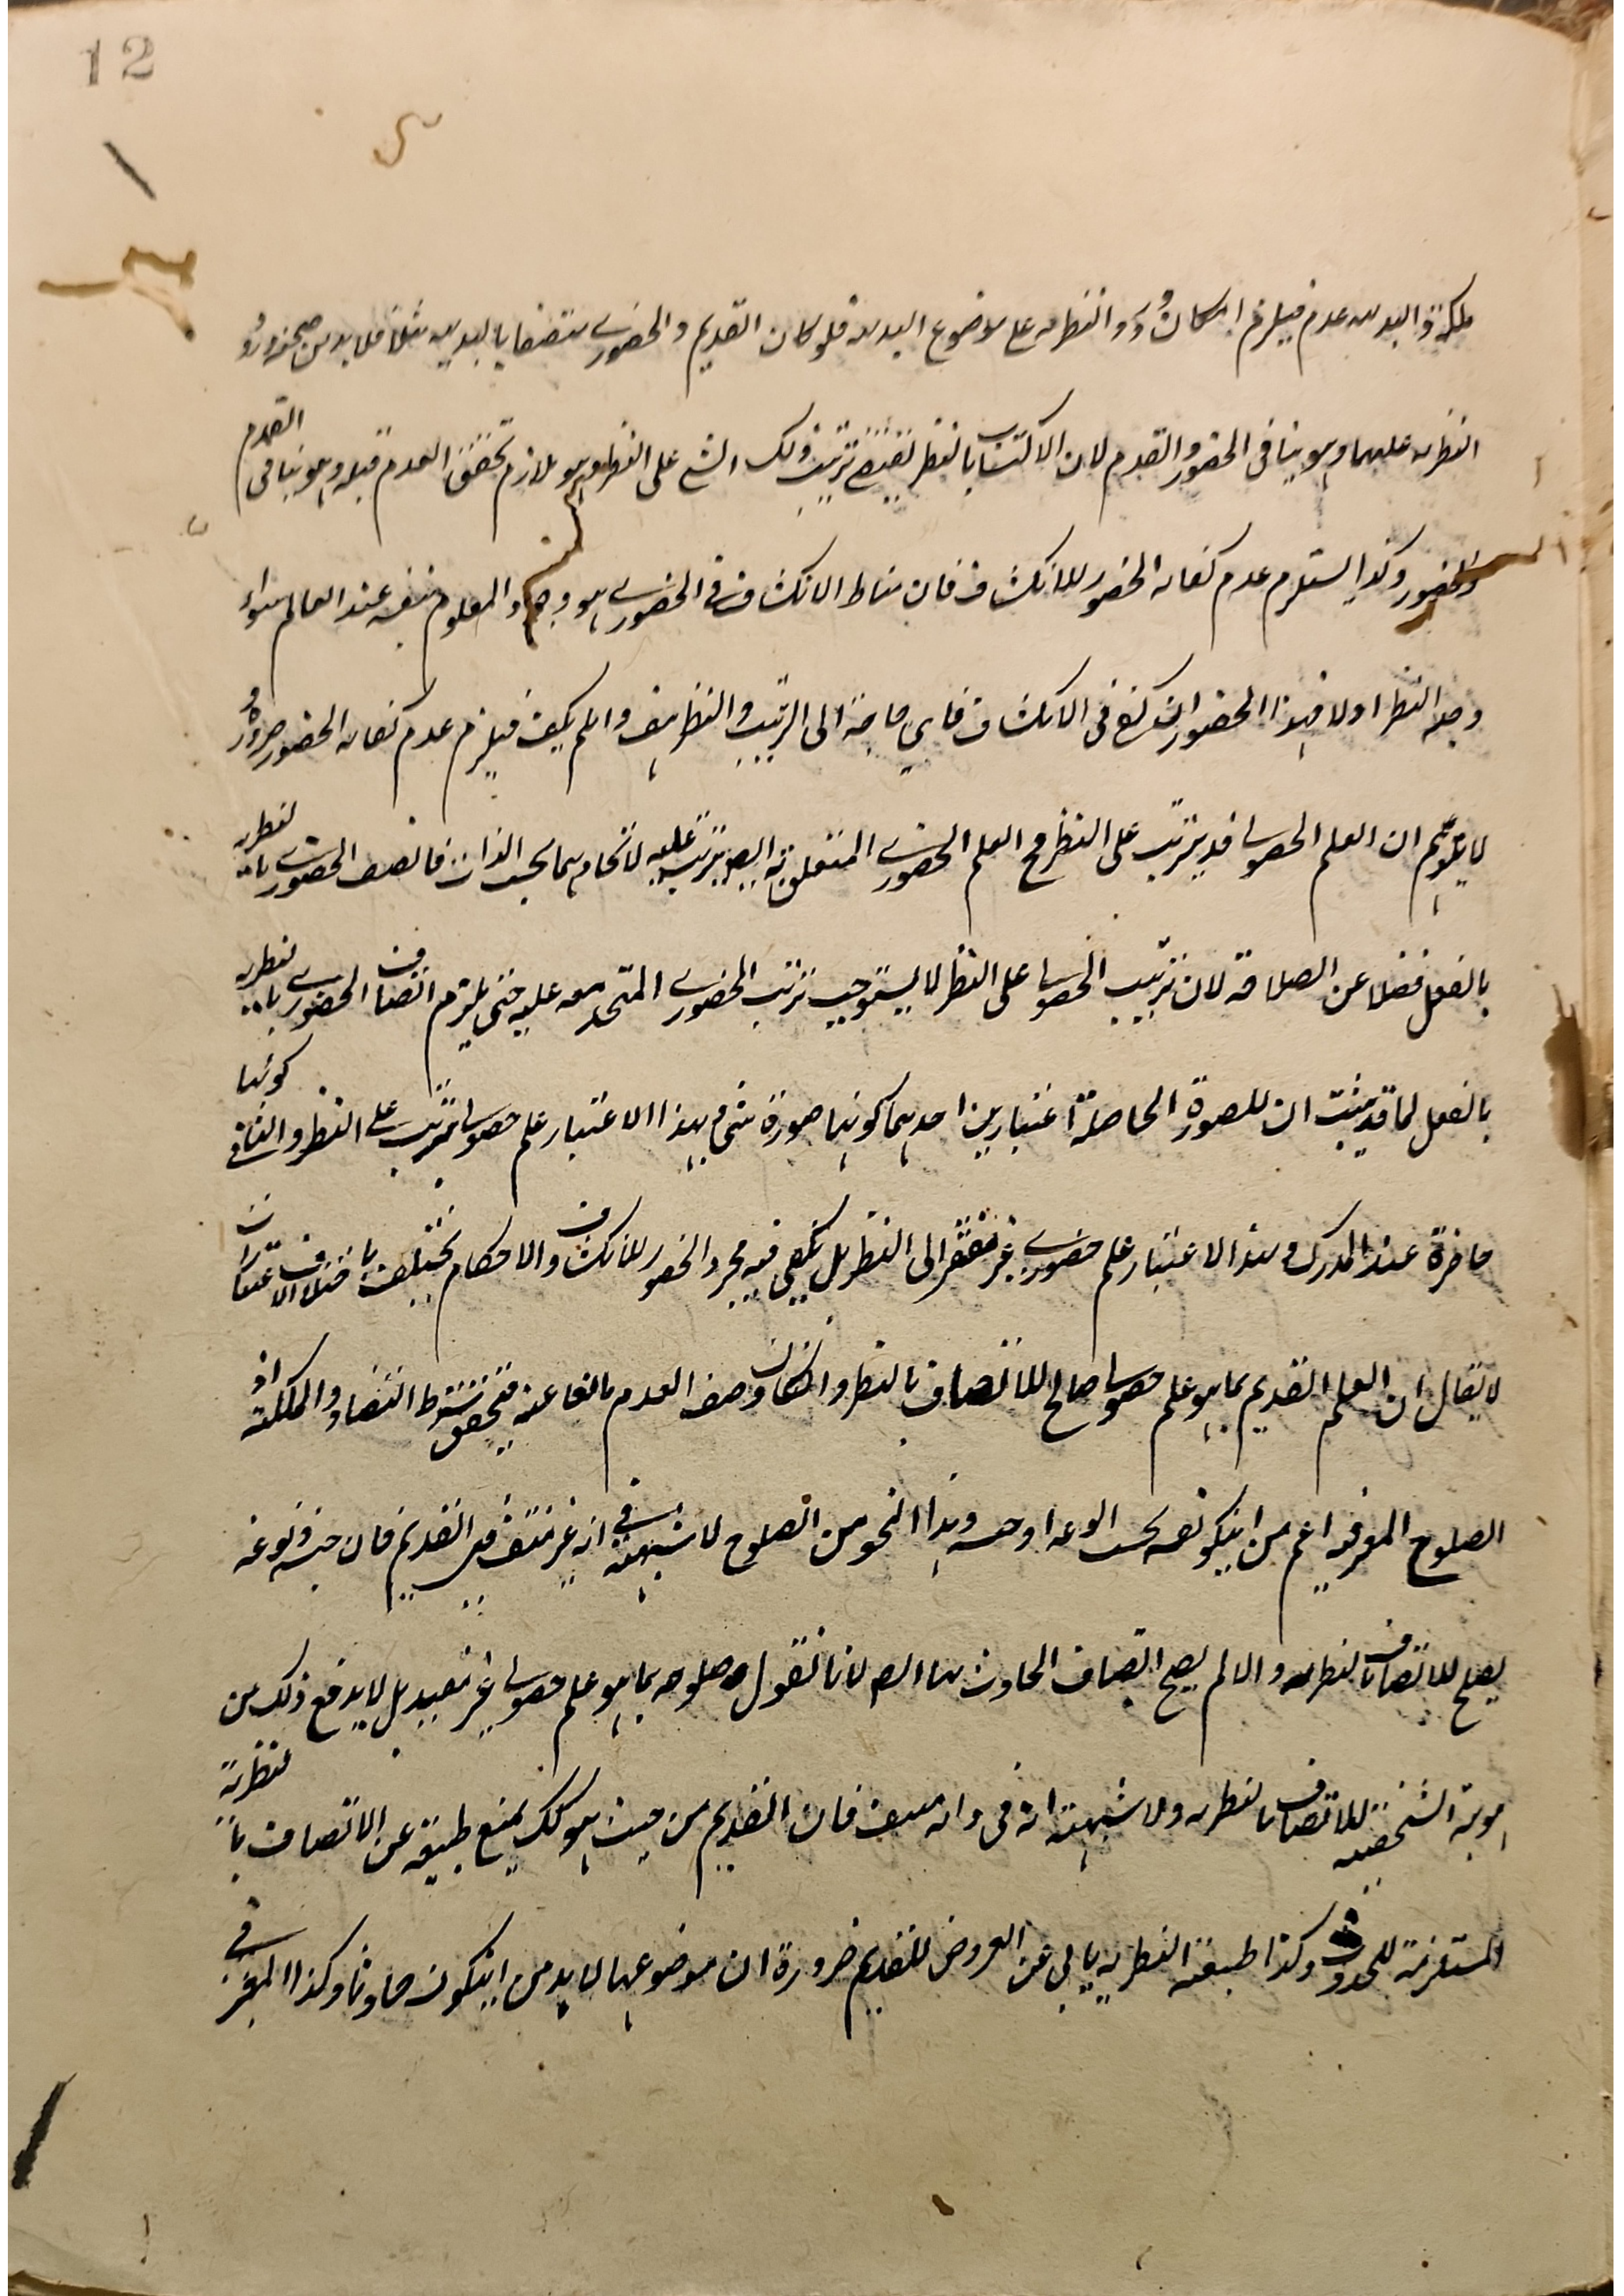 12
ملكة والبديهة عدم فيلزم امكان ورود النظرية على موضوع البديهة فلو كان القديم والحضوري متصفا بالبديهية مثلا فلا بد من صحة ورود
النظرية عليهما وهو ينافى الحضور والقدم لان الاكتساب بالنظر يقتضي ترتب ذلك الشئ على النظر وهو يلازم تحقق العدم قبله وهو ينافى القدم
والحضور وكذا يستلزم عدم كفاية الحضور للانكشاف فان مناط الانكشاف في الحضوري هو وجود المعلوم بنفسه عند العالم سواء
وجد النظر اولا فهذا الحضور ان كفى فى الانكشاف فاي حاجة الى الترتيب والنظر هف وان لم يكف فيلزم عدم كفاية الحضور ضرورة
لا يتوهم ان العلم الحصولى قد يترتب على النظر فح العلم الحضوري المتعلق به ايضا يترتب عليه لاتحادهما بحسب الذات فاتصف الحضوري بالنظرية
بالفعل فضلا عن الصلاحة لان ترتب الحصولى على النظر لا يستوجب ترتب الحضوري المتحد معه عليه حتى يلزم اتصاف الحضوري بالنظرية
بالفعل لما قد ثبت ان للصورة الحاصلة اعتبارين احدهما كونها صورة شئ وبهذا الاعتبار علم حصولى يترتب على النظر والثانى كونها
حاضرة عند المدرك وبهذا الاعتبار علم حضوري غير مفتقر الى النظر بل يكفى فيه مجرد الحضور للانكشاف والاحكام تختلف باختلاف الاعتبارات
لا يقال ان العلم القديم بما هو علم حصولى صالح للاتصاف بالنظر وان كان وصف القدم مانعا عنه فتحقق شرط التضاد والملكة اذ
الصلوح المعتبر فيه اعم من ان يكون بحسب نوعه او جنسه وهذا النحو من الصلوح لا شبهة في انه غير منتف فى القديم فان جنسه ونوعه
يصلح للاتصاف بالنظرية والا لم يصح اتصاف الحادث بها ايضا لانا نقول صلوحه بما هو علم حصولى غير مفيد بل لا بد مع ذلك من
هوية الشخصية للاتصاف بالنظرية ولا شبهة انه فى ذاته منتف فان القديم من حيث هو كذلك يمنع طبيعته عن الاتصاف بالنظرية
المستلزمة للحدوث وكذا طبيعة النظرية يابى عن العروض للقديم ضرورة ان موضوعها لا بد من ان يكون حادثا وكذا المعتبر في